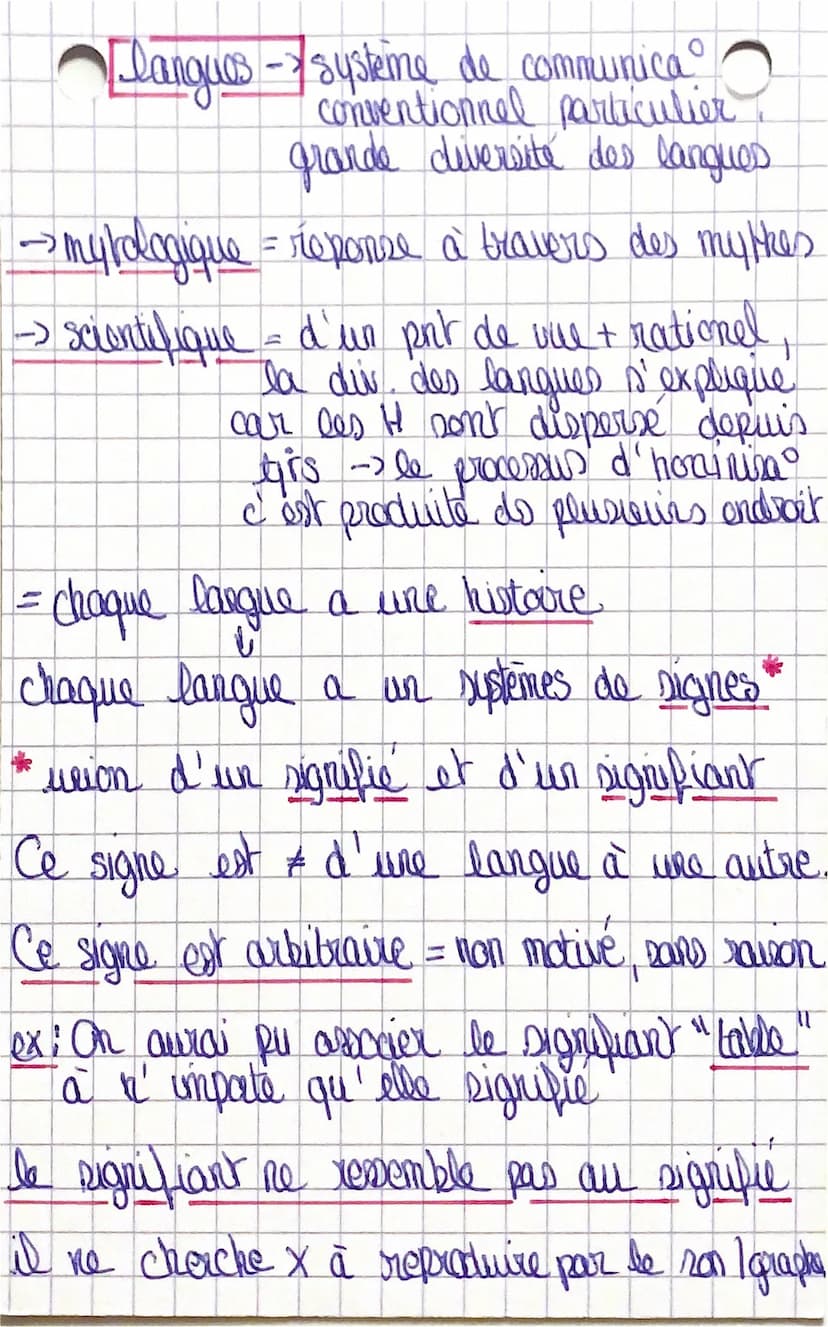 langues -> système de communica°
conventionnel particulier.
grande diversité des langues
-> mytologique = réponse à travers des mythes
-> scientifique = d'un pnt de vue + rationel,
la div. des langues s'explique
car les H sont dispersé depuis
tjrs -> le processus d'hominisa°
c'est produite ds plusieurs endroit
= chaque langue a une histoire
↓
chaque langue a un systèmes de signes*
* union d'un signifié et d'un signifiant
Ce signe est ≠ d'une langue à une autre.
Ce signe est arbitraire = non motivé, sans raison
ex: On aurai pu associer le signifiant "table"
à n'impate qu'elle signifié
le signifiant ne ressemble pas au signifié
il ne cherche x à reproduire par le son / graphe